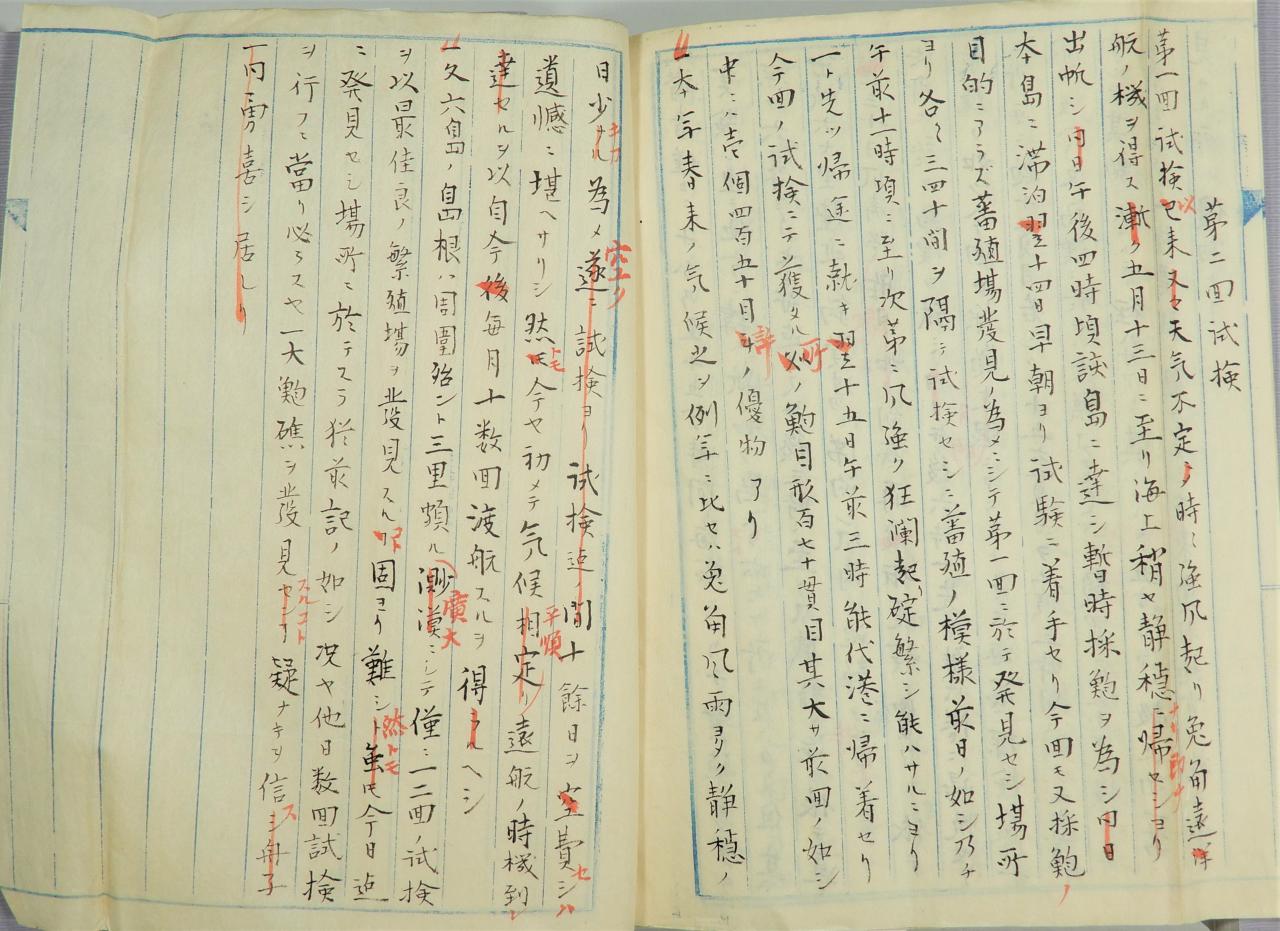 第二回試検
第一回試検已来又々天気不定ノ時々強風起リ兎角遠洋
以
航ノ機ヲ得ス漸ク五月十三日ニ至リ海上稍々静穏ニ帰セシヨリ
出帆シ同日午後四時頃該島ニ達シ暫時採鮑ヲ為シ同日
本島ニ滞泊翌十四日早朝ヨリ試験ニ着手セリ今回モ又採鮑ノ
目的ニアラズ蕃殖場発見ノ為メニシテ第一回ニ於テ発見セシ場所
ヨリ各々三四十間ヲ隔テ試検セシニ蕃殖ノ模様前日ノ如シ乃チ
午前十一時頃ニ至リ次第ニ風強ク狂瀾起リ碇繋シ能ハサルニヨリ
一ト先ツ帰途ニ就キ翌十五日午前三時能代港ニ帰着セリ
今回ノ試検ニテ獲タル処ノ鮑目形百七十貫目其大サ前回ノ如シ
所
中ニハ壱個四百五十目斗ノ優物アリ
許
一本年春来ノ気候之ヲ例年ニ比セハ兎角風雨多ク静穏ノ
日少ナル為メ遂ニ試検ヨリ試検迠ノ間十余日ヲ空費シ
キカ
空ク
セハ
遺憾ニ堪ヘサリシ然モ今ヤ初メテ気候相定リ遠航ノ時機到
トモ
平順
達セルヲ以自今後毎月十数回渡航スルヲ得ラルヘシ
一久六島ノ島根ハ周囲殆ント三里頻ル渺漠ニシテ僅ニ一二回ノ試検
廣大
ヲ以最佳良ノ繁殖場ヲ発見スル固ヨリ難シト雖モ今日迠
然トモ
ニ発見セシ場所ニ於テスラ猶前記ノ如シ况ヤ他日数回試検
ヲ行フニ當リ必ラスヤ一大鮑礁ヲ発見セン疑ナキヲ信シ舟子
スルコト
ス
一同勇喜シ居レリ